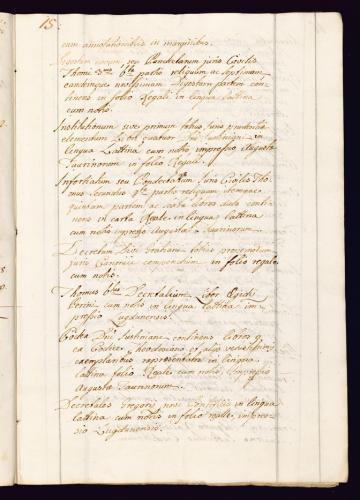 15.
cum annotationibus in marginibus.
Digestum novum, seu Pandectarum juris Civilis
Thomi 3.us 6.ta partis reliquum ac septimam,
eandemque novissimam Digestorum partem con
tinens in folio Regali in lingua lattina
cum notis.
Institutionum sive primum totius juris prudentia
elementum Libri quatuor Iustiniani in
lingua Lattina cum notis impressio Augusta
Taurinorum in folio Regali.
Infortiatum seu Pandectarum Juris Civilis Tho
mus secundus partis reliquum
quintam partem ac libros duos conti
nens in carta Reale, in lingua lattina
cum notis impressio Augustae Taurinorum
Decretum Divi Gratiani totius
juris Canonici compendium in folio regale
cum notis.
Thomus 6.tus Decretalium Liber Egidi
Perini cum notis in lingua lattina im
pressio Lugdunensis.
Codex Dni Justiniani continens libros
ex Codice Theodosiano et alio
exemplaribus in lingua
lattina folio Reale cum notis Impressio
Augusta Taurinorum.
Decretales Gregorij noni in lingua
lattina cum notis in folio reale, impres
sio Lugdunensis.